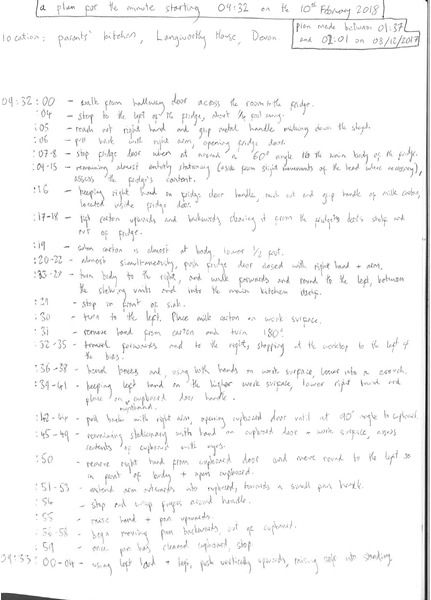 a plan for the minute starting 09:32 on the 10th February 2018
plan made between 01:37
and 02:01 on 03/12/2017
location: parents' kitchen, Langworthy House, Devon
09:32:00 - walk from hallway door across the room to the fridge.
:04 - stop to the left of the fridge, about 1/2 foot away.
:05 - reach out right hand and grip metal handle midway down the
:06 - pull back with right arm, opening fridge door.
:07-8 - stop fridge door when at around a 60° angle to the main body of the fridge.
:09-15 - remaining almost entirely stationary (aside from slight movements of the head where necessary),
assess the fridge's content.
:16 - keeping right hand on fridge door handle, reach out and grip handle of milk carton,
located inside fridge door.
:17-18 - lift carton upwards and backwards, clearing it from the fridge's door's shelf and
out of fridge.
:19 - when carton is almost at body, lower 1/2 foot.
:20-22 - almost simultaneously, push fridge door closed with right hand + arm.
- turn body to the right, and walk forwards and round to the left, between
the shelving units and into the main kitchen itself.
:29 - stop in front of sink.
:30 - turn to the left. Place milk carton on work surface.
:31 - remove hand from carton and turn 180°.
:32-35 - travel forwards and to the right, stopping at the worktop to the left of
the
:36-38 - bend knees and, using both hands on work surface, lower into a crouch.
:39-41 - keeping left hand on the higher work surface, lower right hand and
place on cupboard door handle.
:42-44 - pull back with right arm, opening cupboard door until at 90° angle to cupboard.
:45-49 - remaining stationary with hand on cupboard door + work surface, assess
contents of cupboard with eyes.
:50 - remove right hand from cupboard door and move round to the left so
in front of body + open cupboard.
:51-53 - extend arm outwards into cupboard, towards a small pan handle.
:54 - stop and wrap fingers around handle.
:55 - raise hand + pan upwards.
:56-58 - begin moving pan backwards, out of cupboard.
:59 - once pan has cleared cupboard, stop.
09:33:00-04 - using left hand + legs, push vertically upwards, raising self into standing.